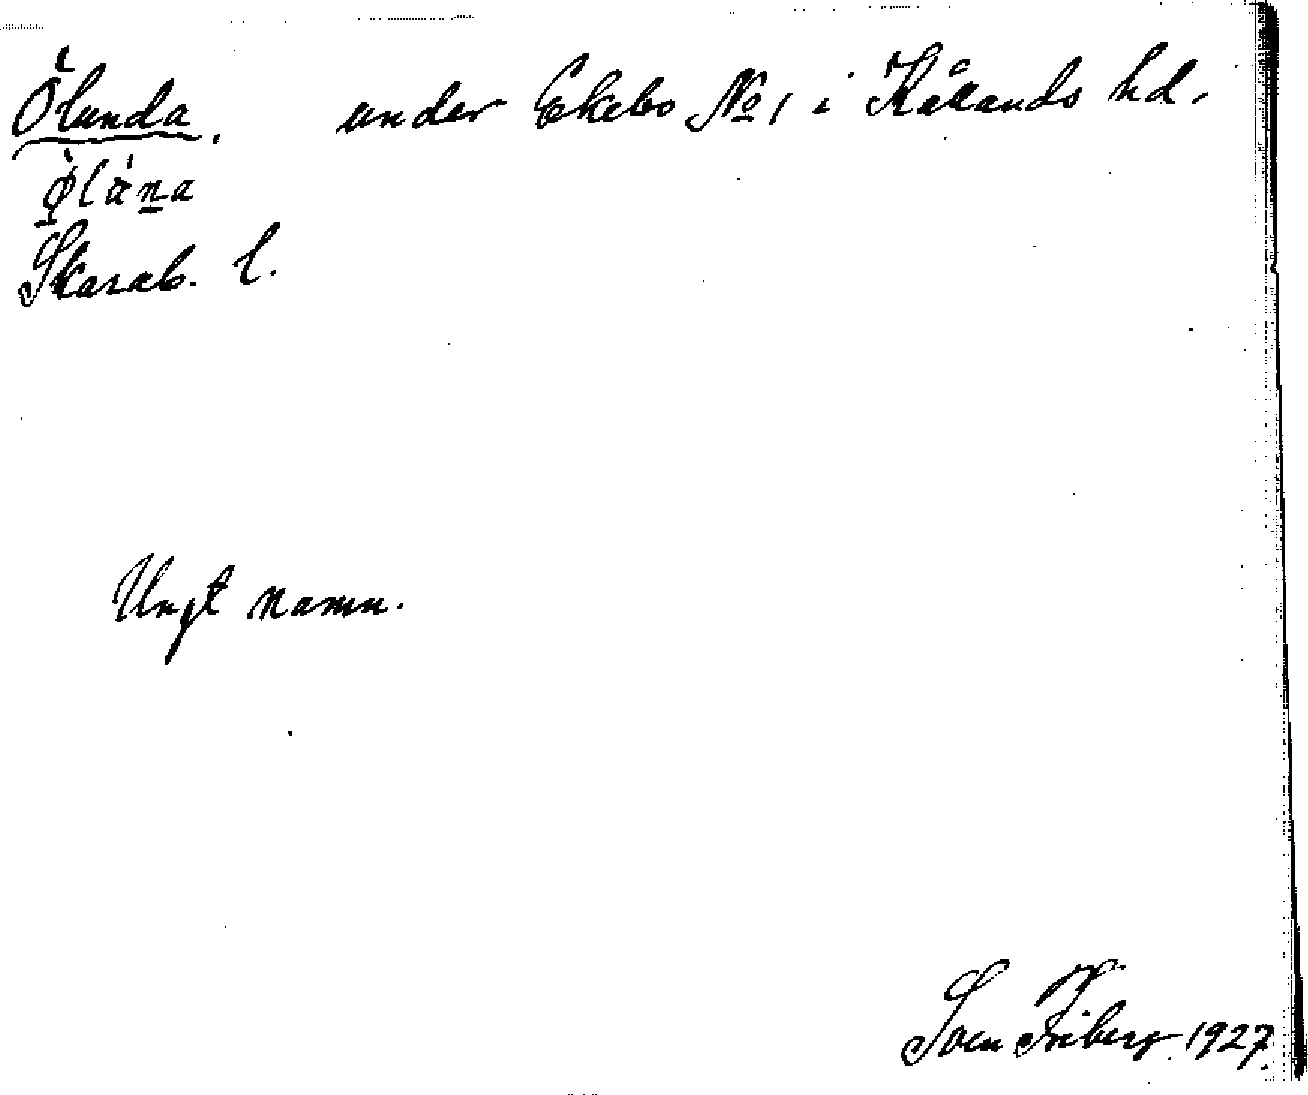 Ölunda. under Ekebo No 1 i Kållands hd.
Skarab. l.
Ungt namn.
Sven Friberg 1927.